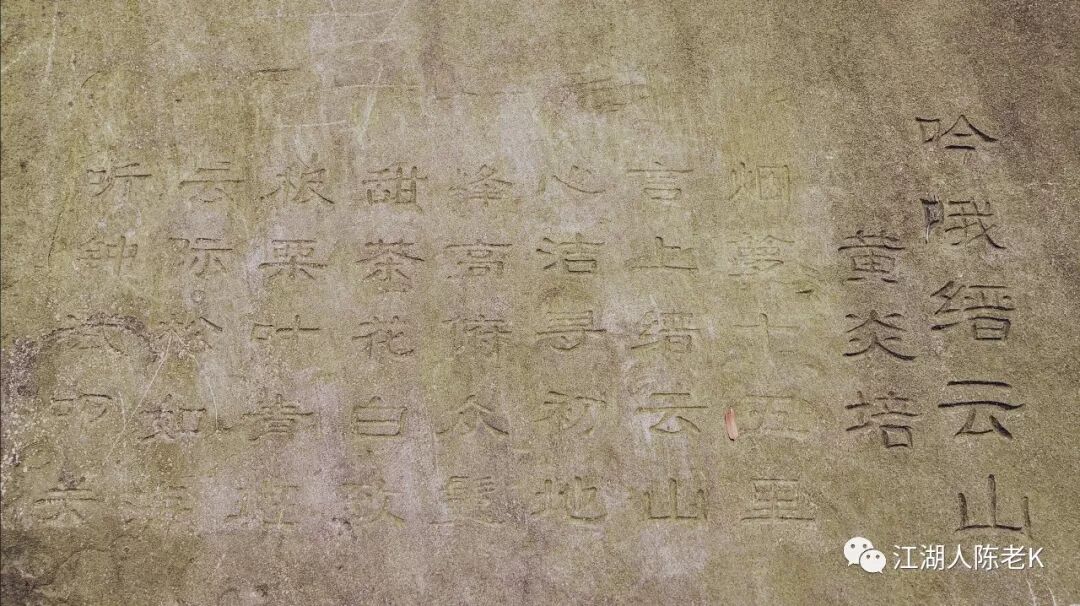 吟哦缙云山
黄炎培
烟萝十五里
言上缙云山
心洁寻初地
峰高俯众鬟
甜茶花白
板栗叶
云际松如
听钟试叩关
江湖人陈老K